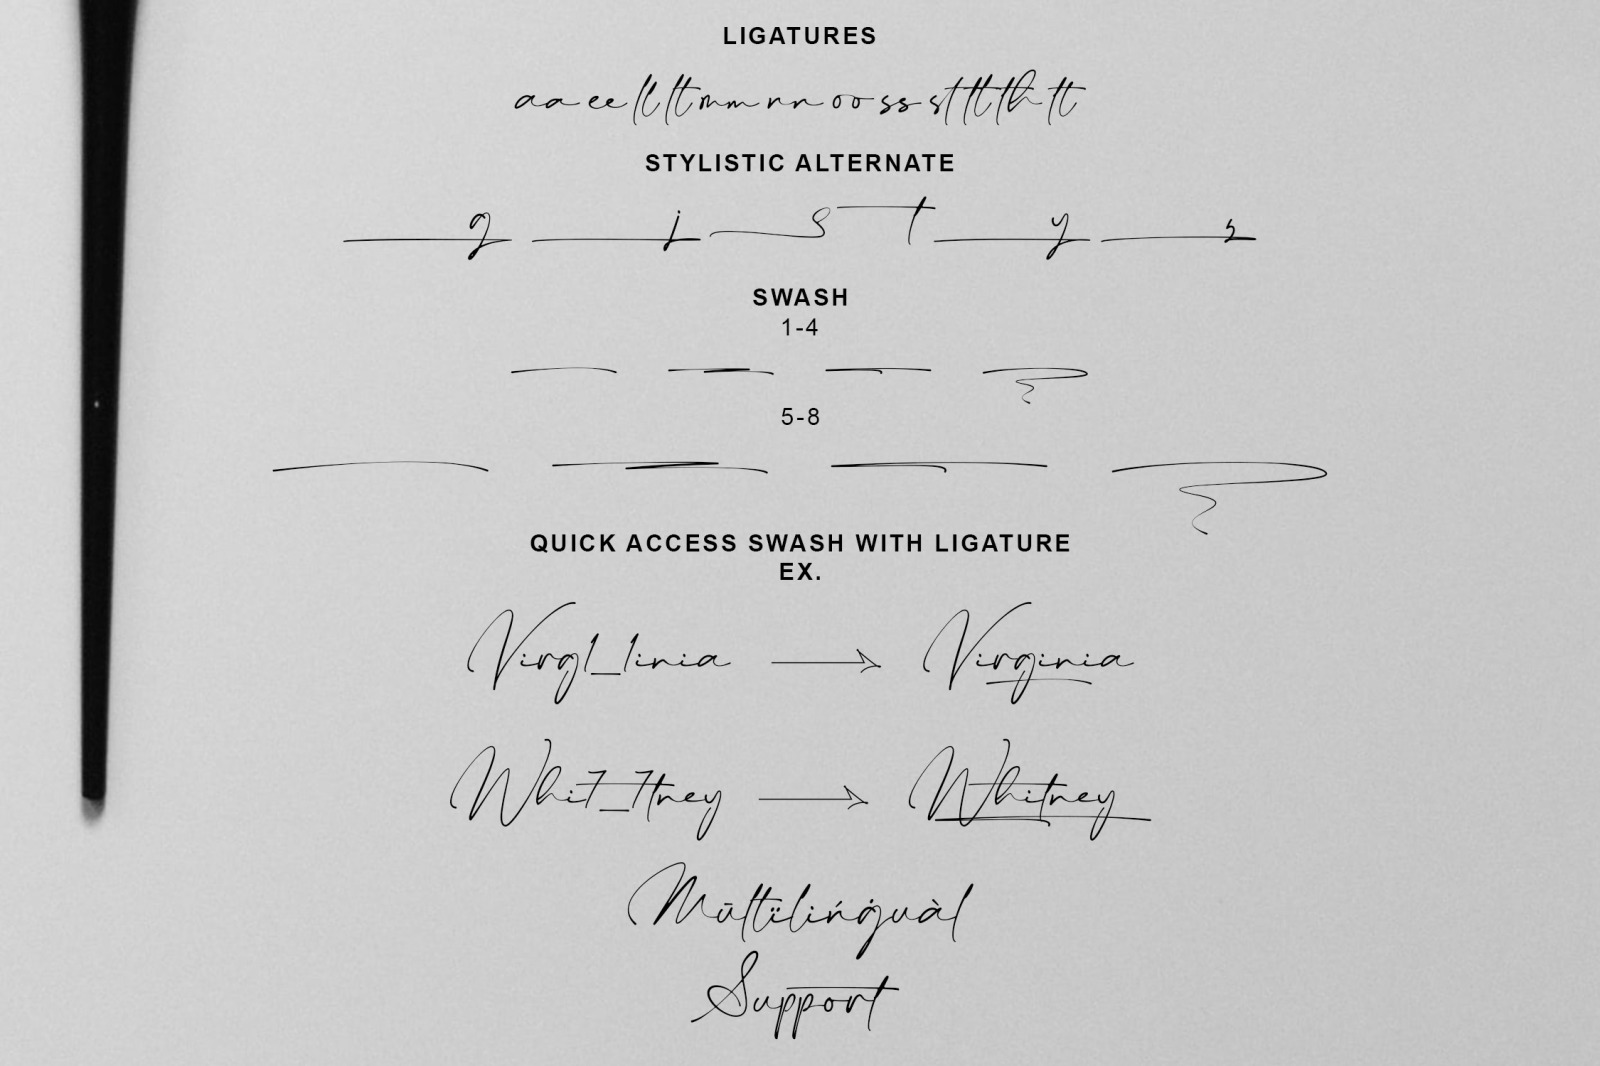 LIGATURES
aa ee ll lt mm nn oo ss st tl th tt
STYLISTIC ALTERNATE
g j s t y s
SWASH
1-4
5-8
QUICK ACCESS SWASH WITH LIGATURE
EX.
Virg1_1inia Virginia
Whi7_7tney Whitney
Mūltïlińġuàl
Support